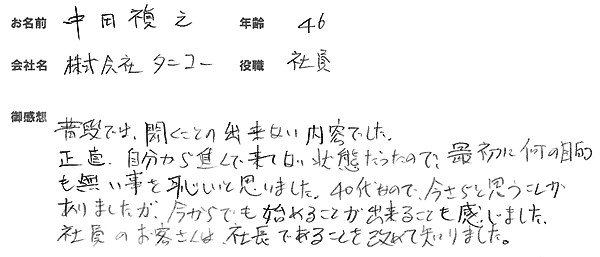 お名前 中田 複之 年齢 46
会社名 株式会社 タニコー 役職 社員
御感想
普段では、聞くことの出来ない内容でした。
正直、自分から進んで来てない状態だったので、最初に何の目的
も無い事を恥しいと思いました。40代なので、今さらと思うことが
ありましたが、今からでも始めることが出来ることも感じました。
社員のお客さんは、社長であることを改めて知りました。